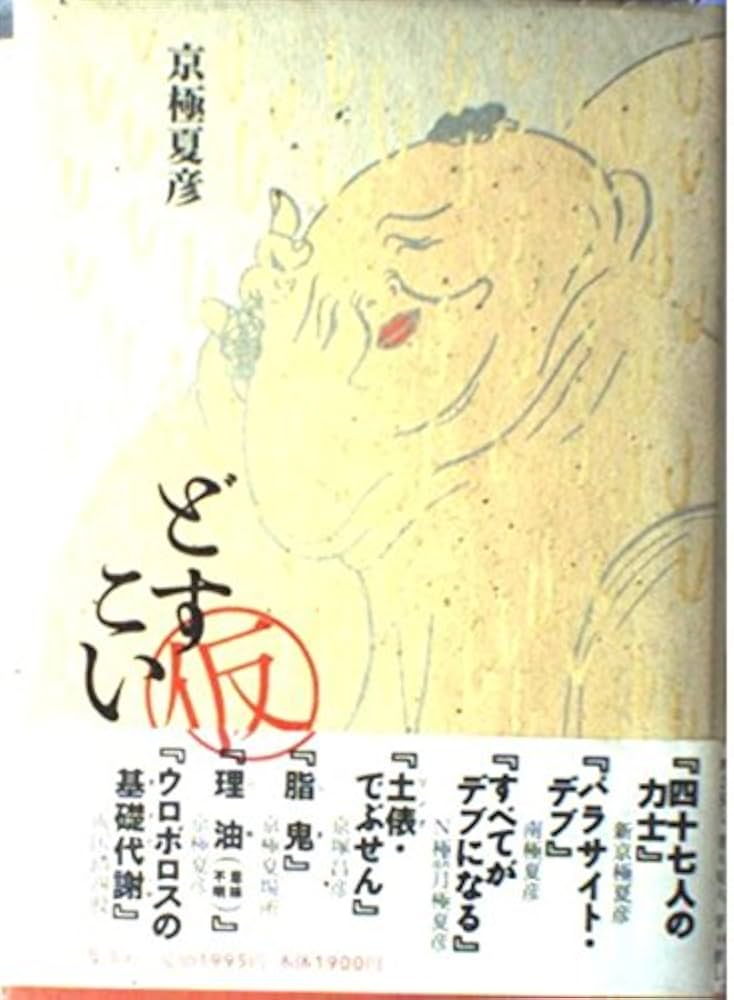 京極夏彦
どす
こい
仮
『四十七人の
力士』
新京極夏彦
『パラサイト・
デブ』
南極夏彦
『すべてが
デブになる』
月極夏彦
『土俵・
でぶせん』
京塚昌彦
『脂鬼』
京極夏場所
『理油(意味不明)』
京極夏彦
『ウロボロスの
基礎代謝』
1995円 本体1900円